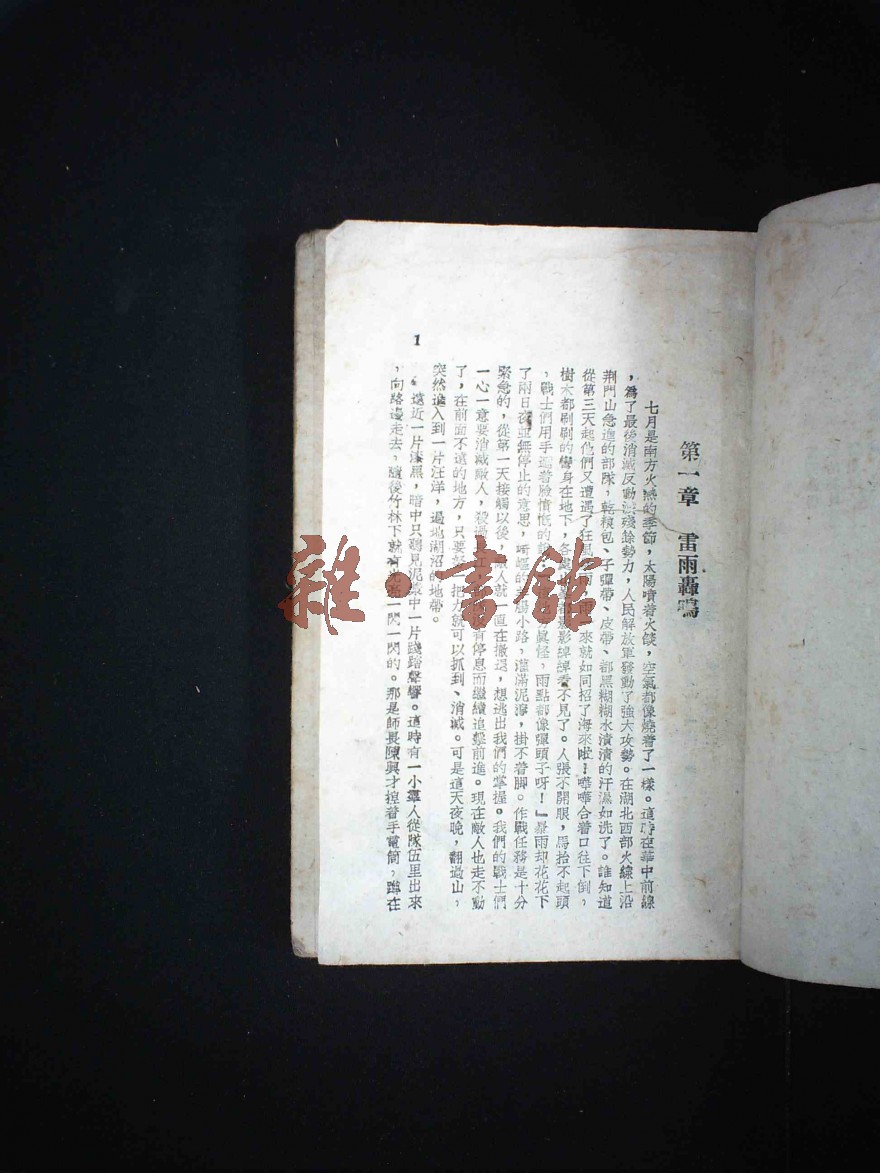 第一章　雷雨轟鳴
七月是南方火熱的季節，太陽噴着火燄，空氣都像燒着了一樣。這時在華中前線
，爲了最後消滅反動派殘餘勢力，人民解放軍發動了強大攻勢。在湖北西部火線上沿
荆門山急進的部隊，乾糧包、子彈帶、皮帶、都黑糊糊水漬漬的汗濕如洗了。誰知道
從第三天起他們又遭遇了狂風雨，雨來就如同招了海來啦！嘩嘩合着口往下倒，
樹木都刷刷的彎身在地下，各影綽綽看不見了。人張不開眼，馬抬不起頭
，戰士們用手遮着臉憤慨的眞怪，雨點都像彈頭子呀！」暴雨却花花下
了兩日夜並無停止的意思，崎嶇的小路，灌滿泥濘，掛不着脚。作戰任務是十分
緊急的，從第一天接觸以後，敵人就一直在撤退，想逃出我們的掌握。我們的戰士們
一心一意要消滅敵人，殺過江沒有停息而繼續追擊前進。現在敵人也走不動
了，在前面不遠的地方，只要努把力就可以抓到、消滅。可是這天夜晚，翻過山，
突然進入到一片汪洋，遍地湖沼的地帶。
遠近一片漆黑，暗中只聽見泥漿中一片踐踏聲響。這時有一小羣人從隊伍里出來
，向路邊走去，隨後竹林下就有光亮一閃一閃的。那是師長陳興才揑着手電筒，蹲在
1
雜·書館